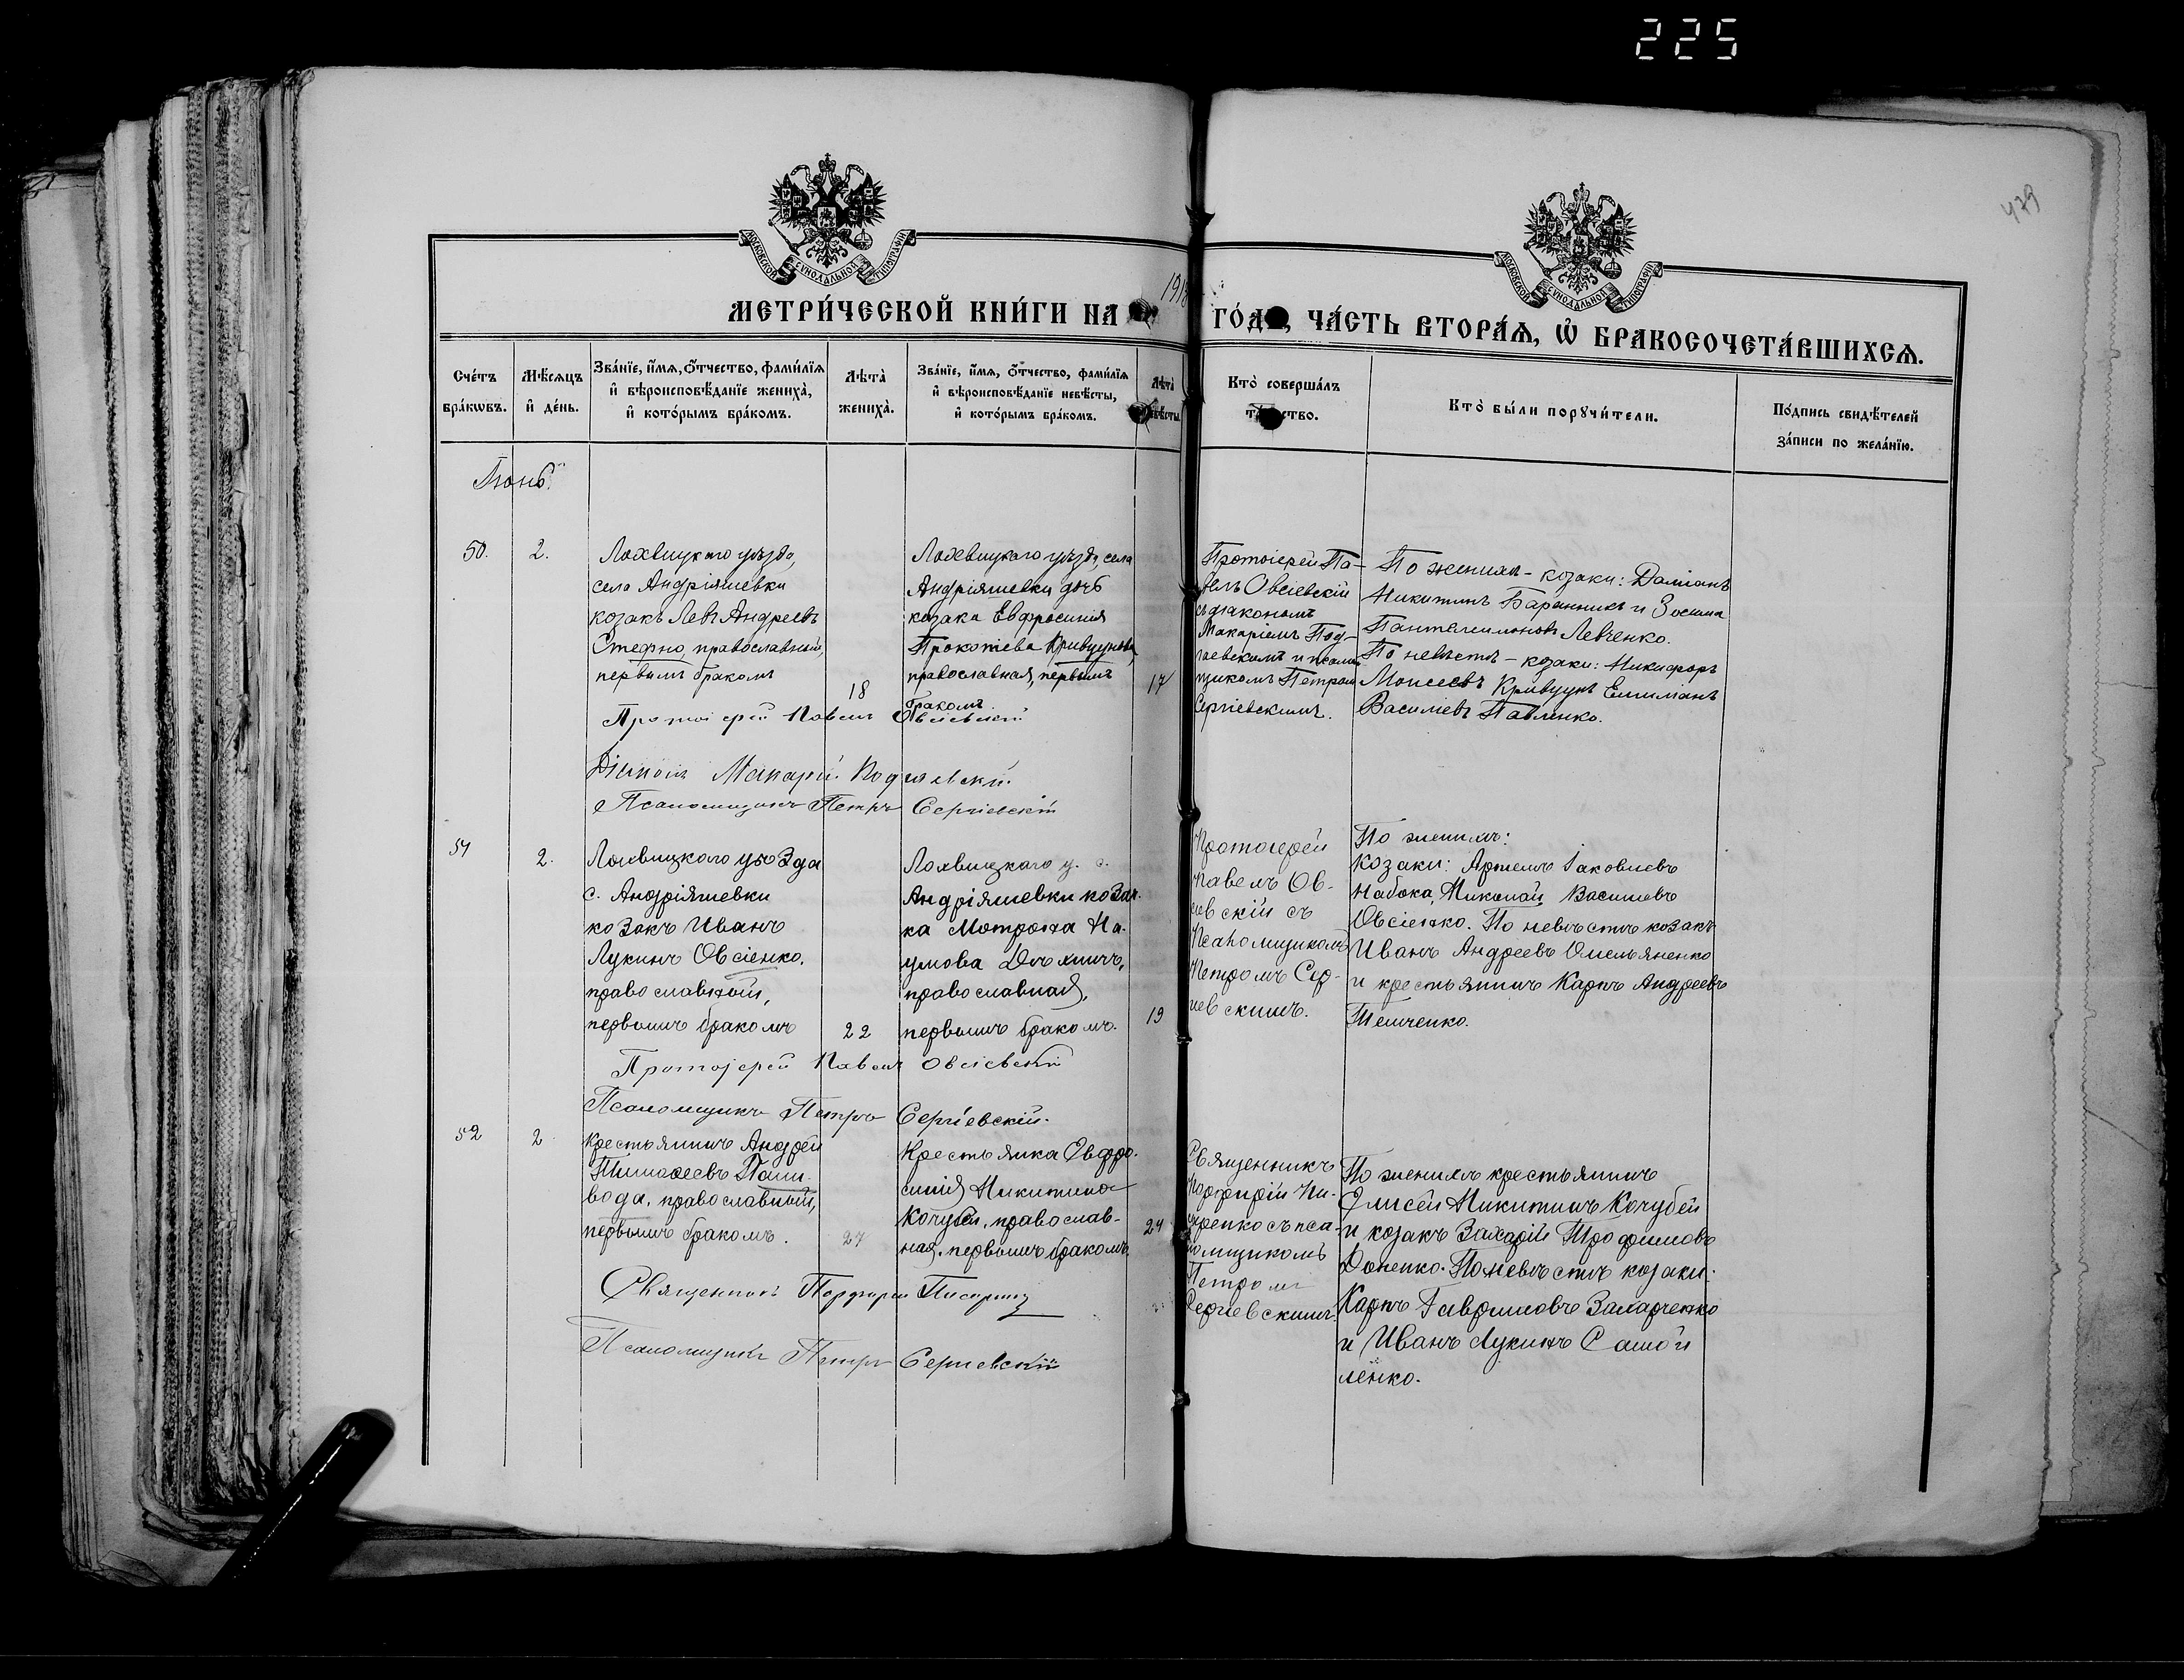 225
479
МОСКОВСКОЙ СѴНОДАЛЬНОЙ ТИПОГРАФІИ
МОСКОВСКОЙ СѴНОДАЛЬНОЙ ТИПОГРАФІИ
МЕТРИ́ЧЕСКОЙ КНИ́ГИ НА 1918 ГО́ДЪ, ЧА́СТЬ ВТОРА́Ѧ, Ѽ БРАКОСОЧЕТА́ВШИХСѦ.
Сче́тъ бра́кѡвъ.
Мѣ́сѧцъ и҆ де́нь.
Зва́нїе, и҆́мѧ, ѻ҆́тчество, фами́лїѧ и҆ вѣроисповѣ́данїе жениха̀, и҆ кото́рымъ бра́комъ.
Лѣта̀ жениха̀.
Зва́нїе, и҆́мѧ, ѻ҆́тчество, фами́лїѧ и҆ вѣроисповѣ́данїе невѣ́сты, и҆ кото́рымъ бра́комъ.
Лѣта̀ невѣ́сты.
Кто̀ соверша́лъ таинство.
Кто̀ бы́ли порꙋчи́тели.
По́дпись свидѣ́телей за́писи по жела́нїю.
Іюнь.
50.
2.
Лохвицкаго уѣзда,
села Андріяшевки
козакъ Левъ Андреевъ
Стефно, православный,
первымъ бракомъ
18
Лохвицкаго уѣзда, села
Андріяшевки дочь
козака Евфросинія
Прокопіева Кривцунова,
православная, первымъ
бракомъ
17
Протоіерей Па-
велъ Овсіевскій
съ діакономъ
Макаріемъ Под-
гаевскимъ и псалом
щикомъ Петромъ
Сергіевскимъ.
По женихѣ - козаки: Даміанъ
Никитинъ Баранникъ и Зосима
Пантелеимоновъ Левченко.
По невѣстѣ - козаки: Никифоръ
Моисеевъ Кривцунъ Емиліанъ
Василіевъ Павленко.
Протоіерей Павелъ Овсіевскій
Діаконъ Макарій Подгаевскій.
Псаломщикъ Петръ Сергіевскій
51
2.
Лохвицкаго уѣзда
с. Андріяшевки
козакъ Иванъ
Лукинъ Овсіенко,
православный,
первымъ бракомъ
22
Лохвицкаго у. с.
Андріяшевки козач-
ка Мотрона На-
умова Дѣхничъ,
православная,
первымъ бракомъ.
19
Протоіерей
Павелъ Ов-
сіевскій съ
Псаломщикомъ
Петромъ Сер-
гіевскимъ.
По женихѣ:
Козаки: Артемъ Іаковлевъ
Набока, Николай Василіевъ
Овсіенко. По невѣстѣ козакъ
Иванъ Андреевъ Омельяненко
и крестьянинъ Карпъ Андреевъ
Темченко.
Протоіерей Павелъ Овсіевскій
Псаломщикъ Петръ Сергіевскій.
52
2
Крестьянинъ Андрей
Тимофеевъ Пали-
вода, православный,
первымъ бракомъ.
27
Крестьянка Евфро-
синія Никитина
Кочубей, православ-
ная, первымъ бракомъ
24
Священникъ
Порфирій Пи-
саренко съ пса-
ломщикомъ
Петромъ
Сергіевскимъ.
По женихѣ крестьянинъ
Елисей Никитинъ Кочубей
и козакъ Захарій Трофимовъ
Доненко. По невѣстѣ козаки:
Карпъ Гавриловъ Захарченко
и Иванъ Лукинъ Самой
ленко.
Священникъ Порфирій
Псаломщикъ Петръ Сергіевскій